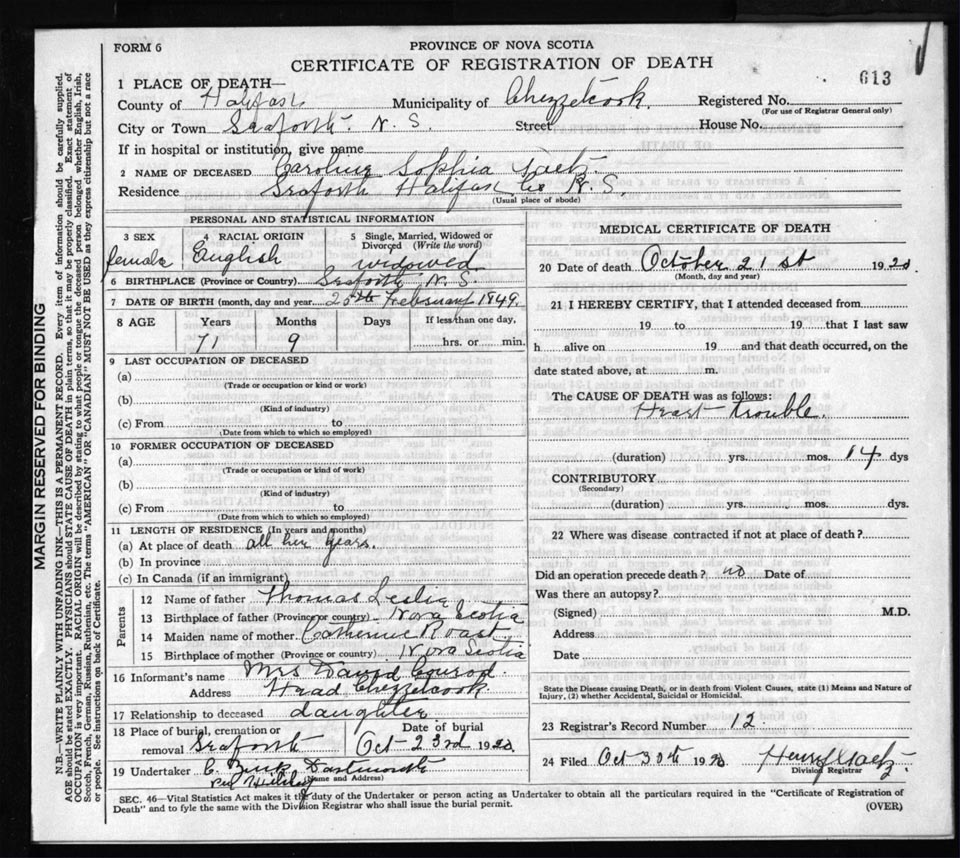 FORM 6
PROVINCE OF NOVA SCOTIA
CERTIFICATE OF REGISTRATION OF DEATH
613
1 PLACE OF DEATH—
County of Halifax Municipality of Chezzetcook. Registered No.
(For use of Registrar General only)
City or Town Seaforth. N. S. Street House No.
If in hospital or institution, give name
2 NAME OF DECEASED Caroline Sophia
Residence Seaforth Halifax Co N. S.
(Usual place of abode)
PERSONAL AND STATISTICAL INFORMATION
3 SEX 4 RACIAL ORIGIN 5 Single, Married, Widowed or Divorced (Write the word)
female English widowed
6 BIRTHPLACE (Province or Country) Seaforth N. S.
7 DATE OF BIRTH (month, day and year) 25th February 1849.
8 AGE Years Months Days If less than one day,
71 9 hrs. or min.
9 LAST OCCUPATION OF DECEASED
(a)
(Trade or occupation or kind or work)
(b)
(Kind of industry)
(c) From to
(Date from which to which so employed)
10 FORMER OCCUPATION OF DECEASED
(a)
(Trade or occupation or kind or work)
(b)
(Kind of industry)
(c) From to
(Date from which to which so employed)
11 LENGTH OF RESIDENCE (In years and months)
(a) At place of death all her years.
(b) In province
(c) In Canada (if an immigrant)
Parents
12 Name of father Thomas Leslie
13 Birthplace of father (Province or country) Nova Scotia
14 Maiden name of mother Catherine Roast
15 Birthplace of mother (Province or country) Nova Scotia
16 Informant's name Mrs David Conrod
Address Head Chezzetcook
17 Relationship to deceased daughter.
18 Place of burial, cremation or removal Seaforth
Date of burial
Oct 23rd 1920.
19 Undertaker Dartmouth
(Name and Address)
MEDICAL CERTIFICATE OF DEATH
20 Date of death October 21st 1920.
(Month, day and year)
21 I HEREBY CERTIFY, that I attended deceased from
19 to 19 that I last saw
h alive on 19 and that death occurred, on the
date stated above, at m.
The CAUSE OF DEATH was as follows:
Heart Trouble.
(duration) yrs. mos. 14 dys
CONTRIBUTORY
(Secondary)
(duration) yrs. mos. dys.
22 Where was disease contracted if not at place of death?
Did an operation precede death? no Date of
Was there an autopsy?
(Signed) M.D.
Address
Date
State the Disease causing Death, or in death from Violent Causes, state (1) Means and Nature of Injury, (2) whether Accidental, Suicidal or Homicidal.
23 Registrar's Record Number 12.
24 Filed Oct 30th 1920
Division Registrar
SEC. 46—Vital Statistics Act makes it the duty of the Undertaker or person acting as Undertaker to obtain all the particulars required in the "Certificate of Registration of
Death" and to fyle the same with the Division Registrar who shall issue the burial permit. (OVER)
MARGIN RESERVED FOR BINDING
N.B.—WRITE PLAINLY WITH UNFADING INK—THIS IS A PERMANENT RECORD. Every item of information should be carefully supplied.
AGE should be stated EXACTLY. PHYSICIANS should STATE CAUSE OF DEATH in plain terms, so that it may be properly classified. Exact statement of
OCCUPATION is very important. RACIAL ORIGIN will be described by stating to what people or tongue the deceased person belonged whether English, Irish,
Scotch, French, German, Russian, Ruthenian, etc. The terms "AMERICAN" OR "CANADIAN" MUST NOT BE USED as they express citizenship but not a race
or people. See instructions on back of Certificate.